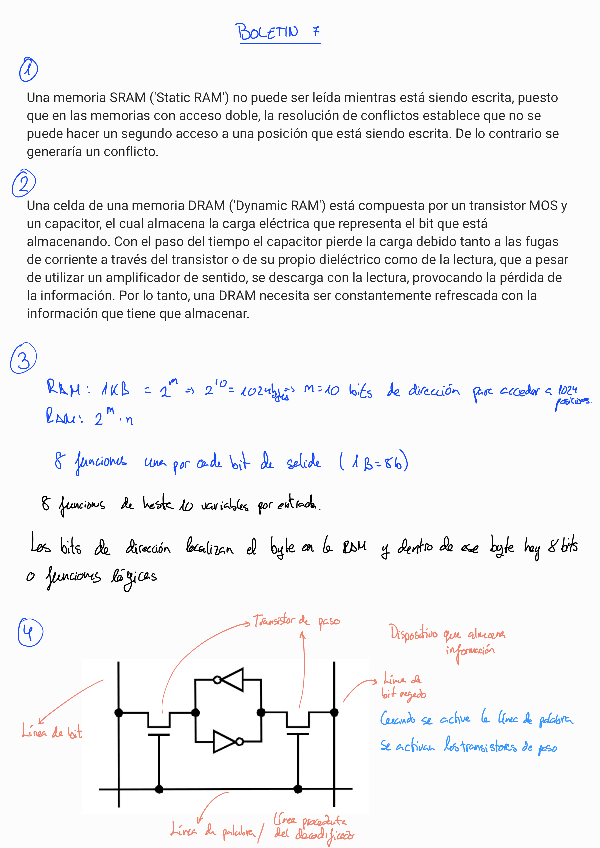 BOLETIN 7
1
Una memoria SRAM ('Static RAM') no puede ser leída mientras está siendo escrita, puesto
que en las memorias con acceso doble, la resolución de conflictos establece que no se
puede hacer un segundo acceso a una posición que está siendo escrita. De lo contrario se
generaría un conflicto.
2
Una celda de una memoria DRAM ('Dynamic RAM') está compuesta por un transistor MOS y
un capacitor, el cual almacena la carga eléctrica que representa el bit que está
almacenando. Con el paso del tiempo el capacitor pierde la carga debido tanto a las fugas
de corriente a través del transistor o de su propio dieléctrico como de la lectura, que a pesar
de utilizar un amplificador de sentido, se descarga con la lectura, provocando la pérdida de
la información. Por lo tanto, una DRAM necesita ser constantemente refrescada con la
información que tiene que almacenar.
3
RAM: 1KB = 2^m => 2^10 = 1024bytes => m=10 bits de dirección para acceder a 1024
posiciones.
RAM: 2^m · n
8 funciones una por cada bit de salida (1B=8b)
8 funciones de hasta 10 variables por entrada.
Los bits de dirección localizan el byte en la RAM y dentro de ese byte hay 8 bits
o funciones lógicas
4
Transistor de paso
Dispositivo que almacena
información
Línea de
bit negado
Línea de bit
Cuando se active la línea de palabra
se activan los transistores de paso
Línea de palabra / Línea procedente
del decodificador